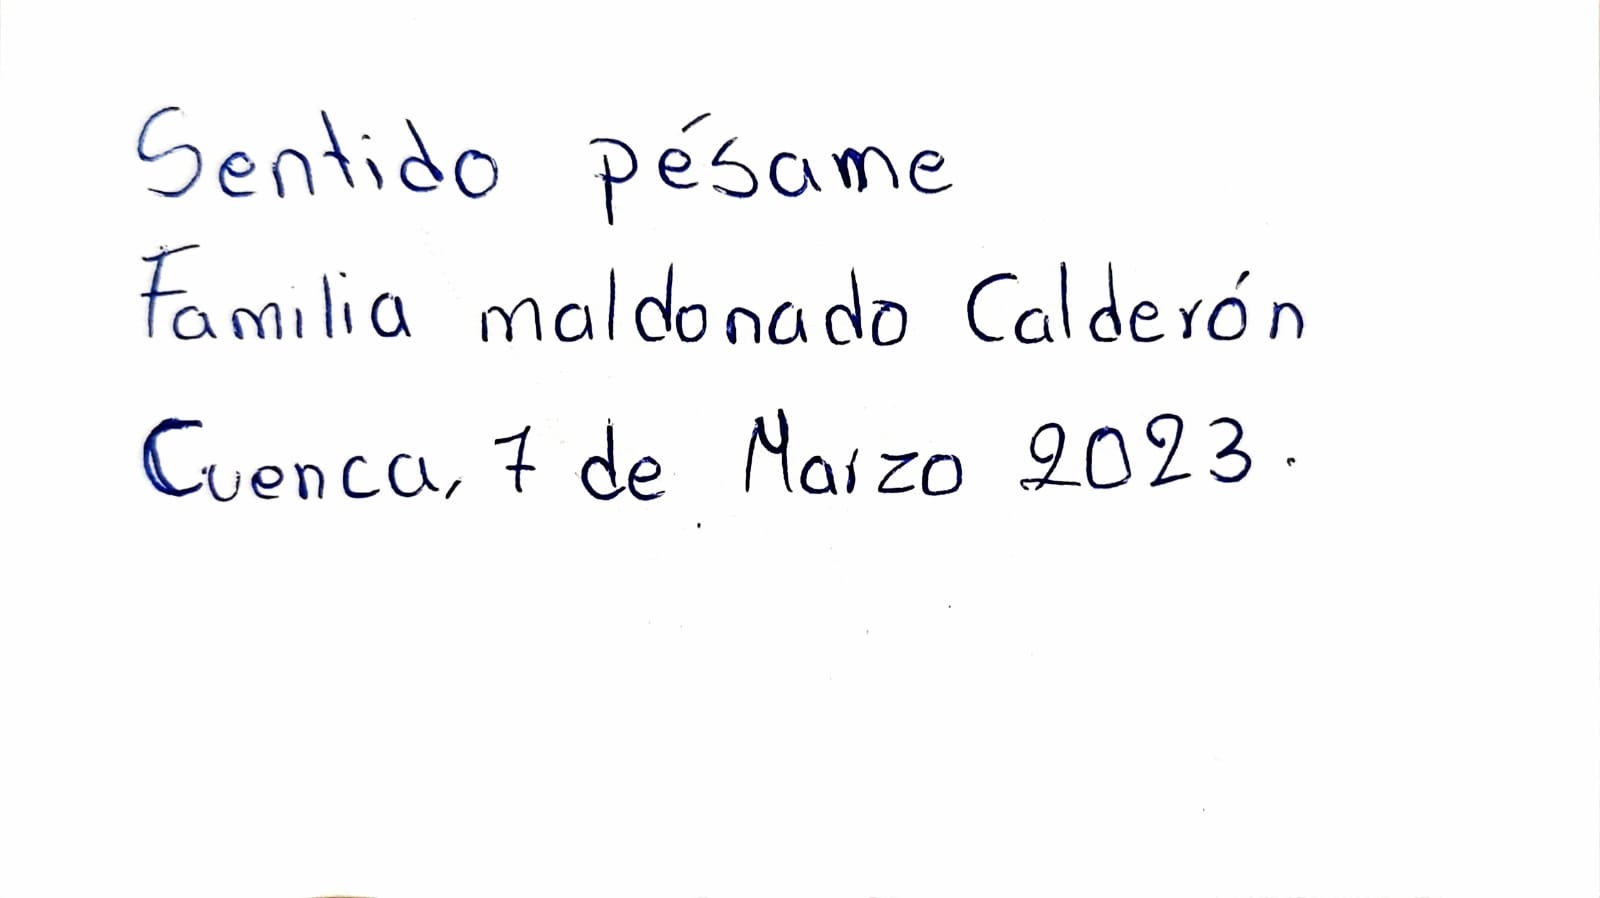 Sentido pésame
Familia maldonado Calderón
Cuenca, 7 de Marzo 2023.